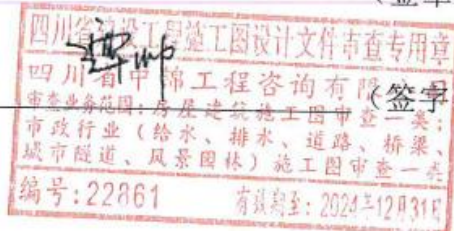 四川省建设工程施工图设计文件审查专用章
四川省中锦工程咨询有限公司
(签字
审查业务范围:房屋建筑施工图审查一类;
市政行业(给水、排水、道路、桥梁、
城市隧道、风景园林)施工图审查一类
编号:22861
有效期至:2024年12月31日